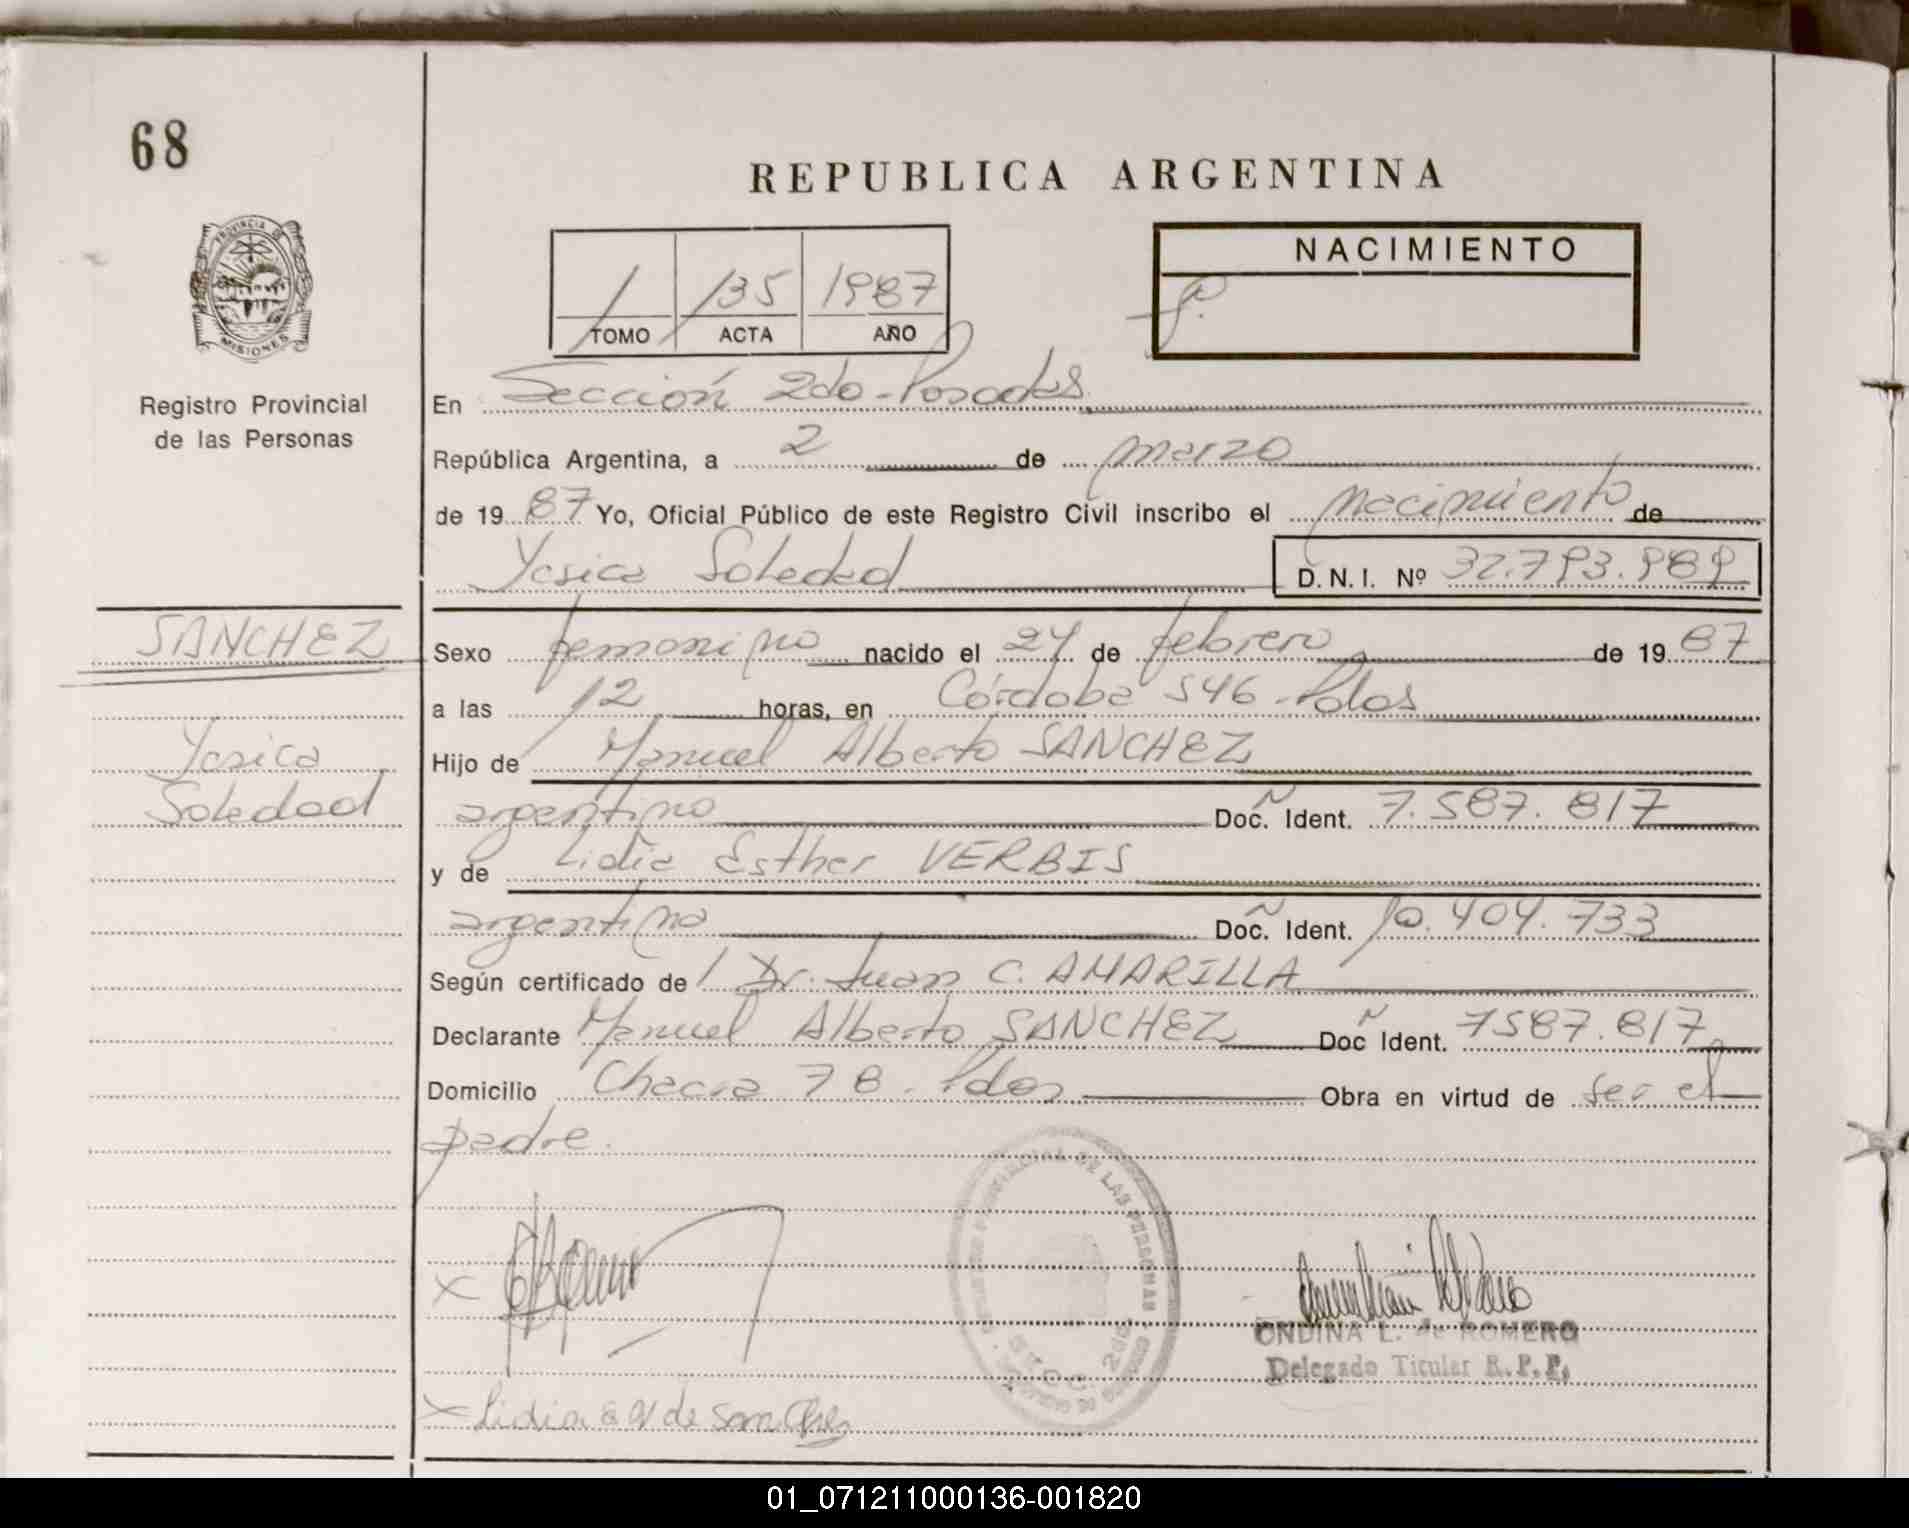 68
REPUBLICA ARGENTINA
PROVINCIA DE MISIONES
1 135 1987
TOMO ACTA AÑO
NACIMIENTO
Registro Provincial
de las Personas
En Sección 2da - Posadas
República Argentina, a 2 de marzo
de 19 87 Yo, Oficial Público de este Registro Civil inscribo el nacimiento de
Yesica Soledad D.N.I. Nº 32.793.989
SANCHEZ
Yesica
Soledad
Sexo femenino nacido el 24 de febrero de 19 87
a las 12 horas, en Córdoba 546 - Pdas
Hijo de Manuel Alberto SANCHEZ
argentino Doc. Ident. 7.587.817
y de Lidia Esther VERBIS
argentina Doc. Ident. 10.404.733
Según certificado de Dr. Juan C. AMARILLA
Declarante Manuel Alberto SANCHEZ Doc Ident. 7587.817
Domicilio Chacra 78 - Pdas Obra en virtud de ser el
padre.
PROVINCIAL DE LAS PERSONAS
SECC. 2da.
ONDINA L. de ROMERO
Delegado Titular R.P.P.
x Lidia E V de Sanchez
01_071211000136-001820